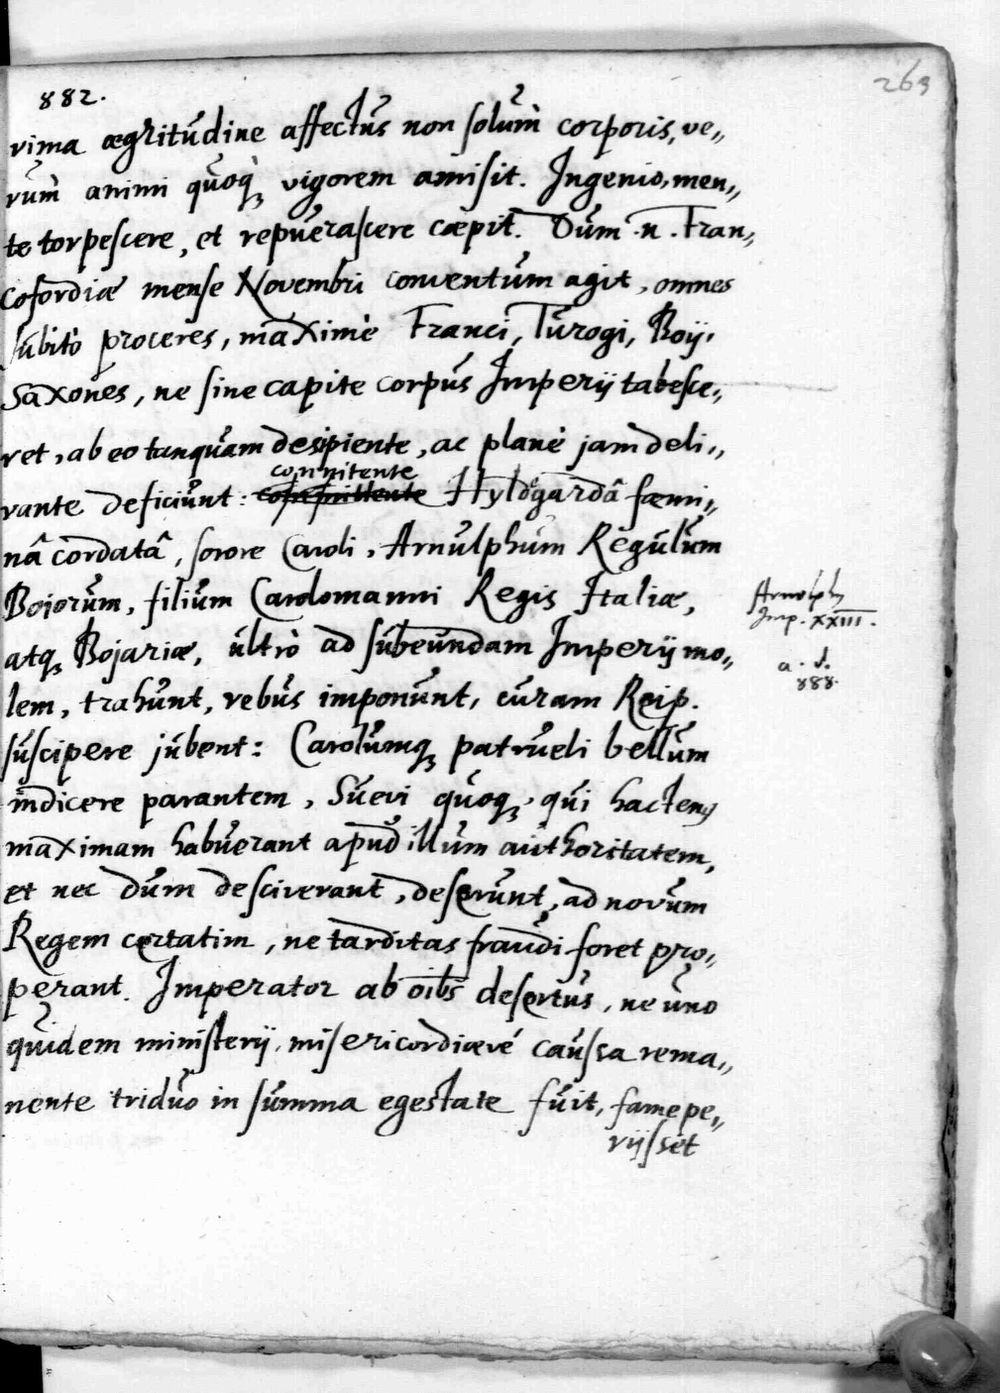 269
882.
rima ægritudine affectus non solum̀ corporis, ve„
rum̀ animi quoq̀ꝫ vigorem amisit. Ingenio, men„
te torpescere, et repuerascere cæpit. Dum .n. Fran„
cofordiæ mense Novembri conventum agit, omnes
subitò proceres, maximè Franci, Turogi, Boij,
Saxones, ne sine capite corpus Imperij tabesce„
ret, ab eo tanquam desipiente, ac planè jam deli„
connitente
rante deficiunt: Hyldegardâ fæmi„
nâ cordatâ, sorore Caroli, Arnulphum Regulum
Boiorum, filium Carolomanni Regis Italiæ,
Arnolph
Imp. XXIII.
atqꝫ Bojariæ, ultrò ad subeundam Imperij mo„
a. d.
888.
lem, trahunt, rebus imponunt, curam Reip.
suscipere jubent: Carolumqꝫ patrueli bellum
indicere parantem, Suevi quoqꝫ, qui hactenꝰ
maximam habuerant apud illum authoritatem,
et nec dum desciverant, deserunt, ad novum
Regem certatim, ne tarditas fraudi foret pro„
perant. Imperator ab oībs desertus, ne uno
quidem ministerij, misericordiævé caussa rema„
nente triduo in summa egestate fuit, fame pe„
rijsset